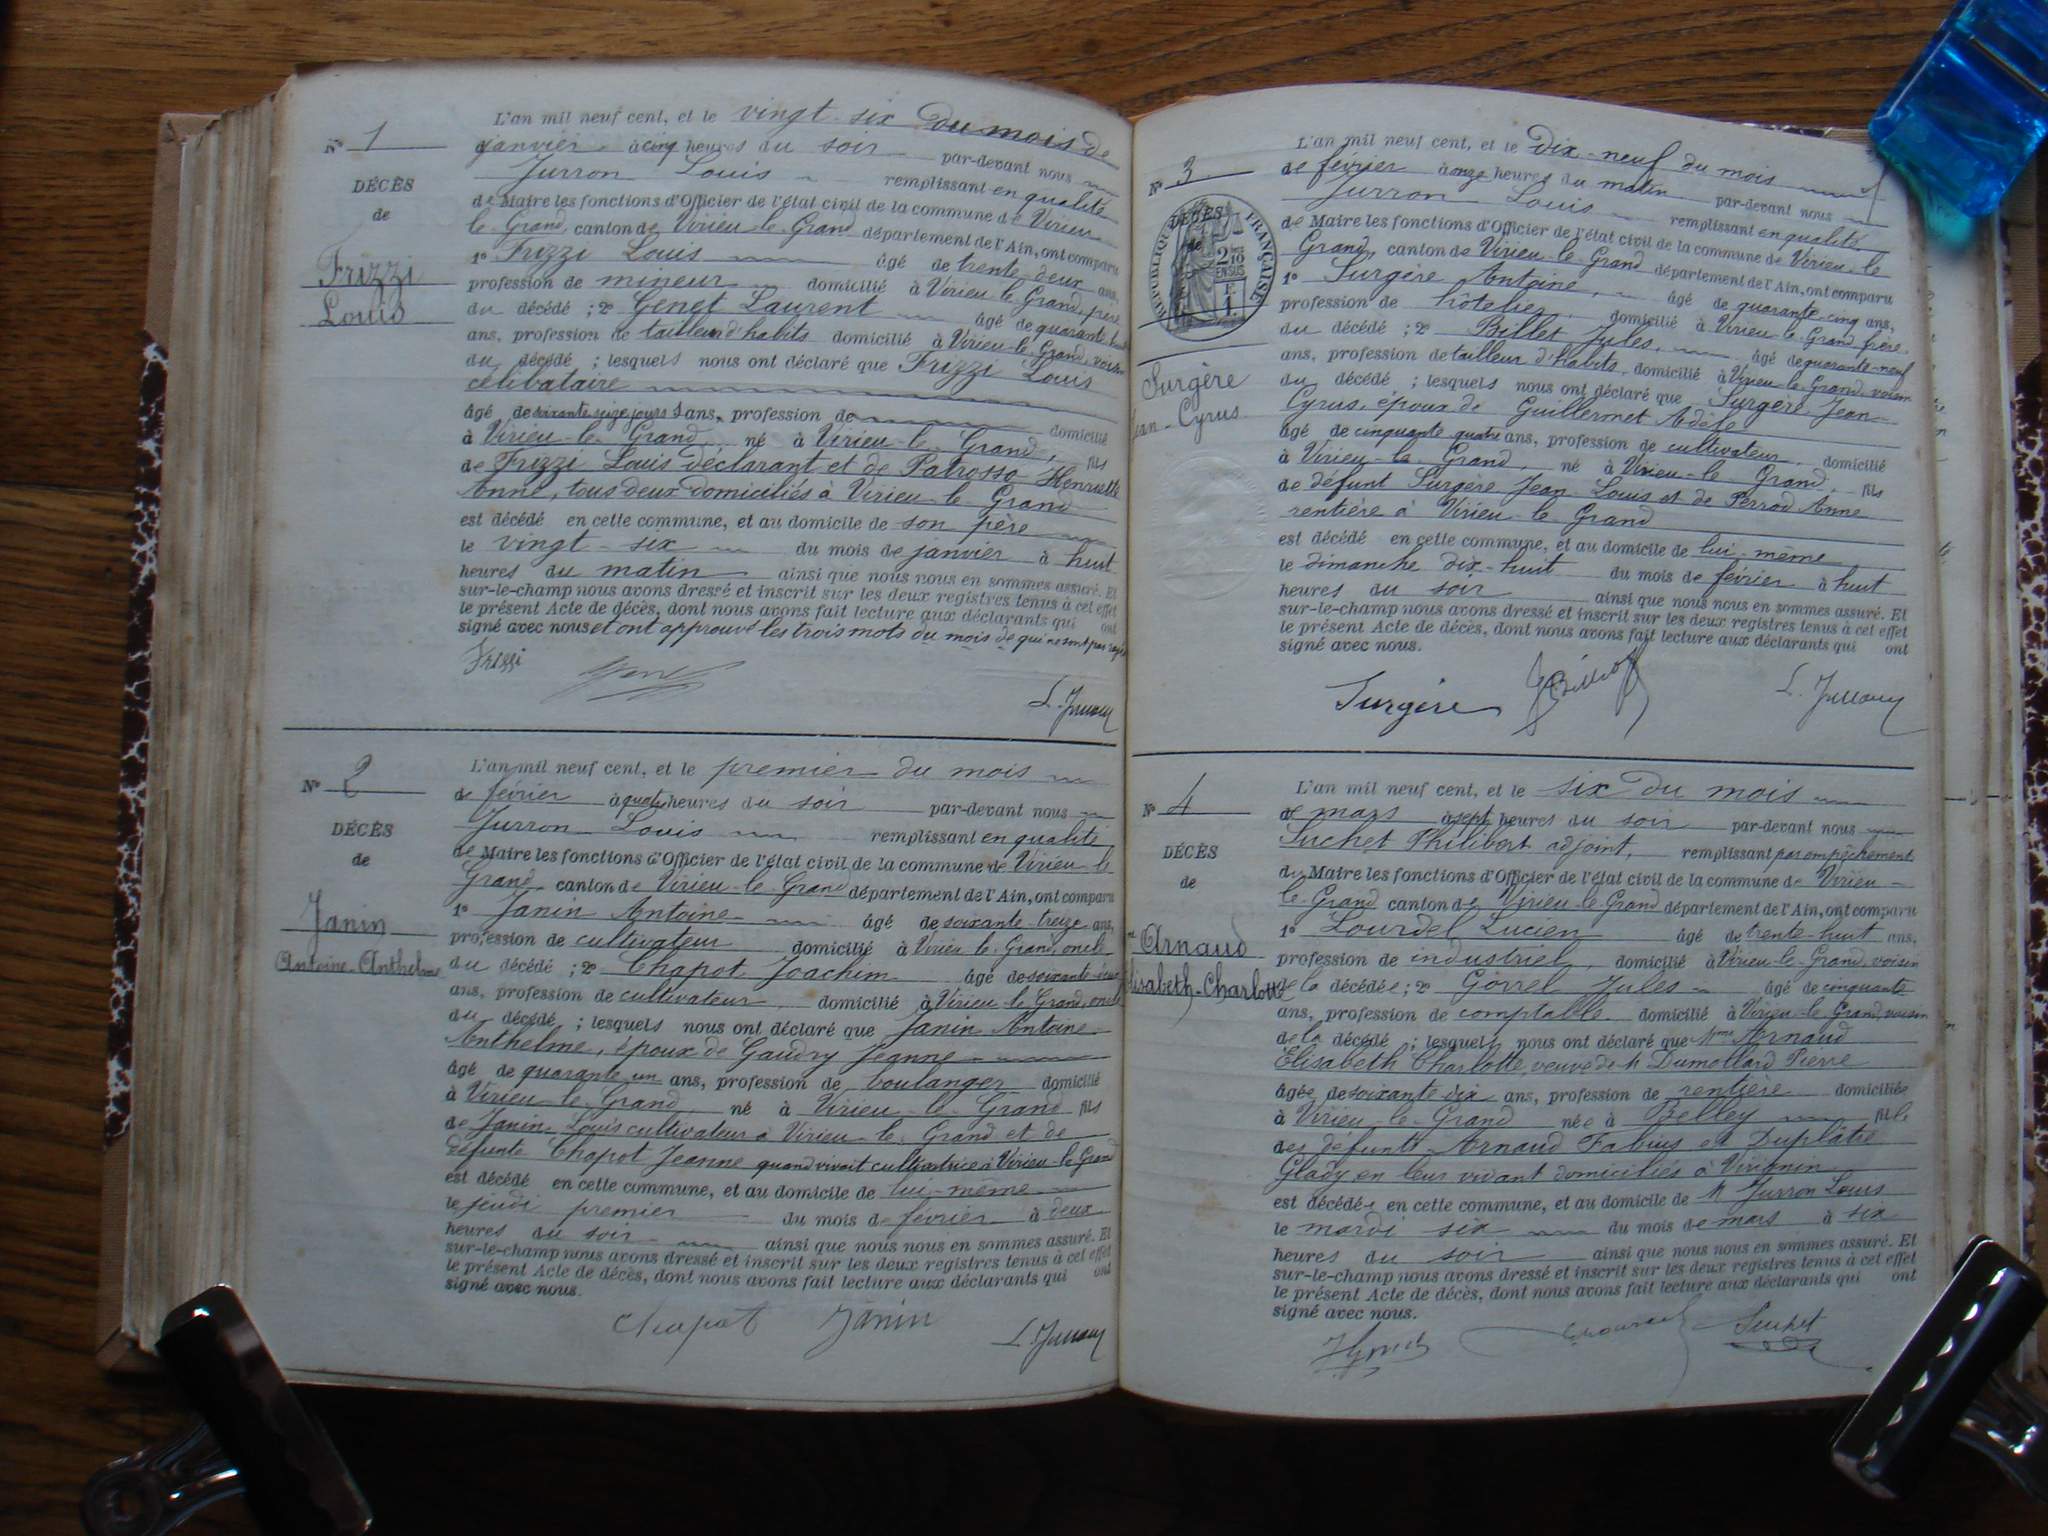 Nº 1
DÉCÈS
de
Frizzi
Louis
L'an mil neuf cent, et le vingt-six du mois de
janvier à cinq heures du soir par-devant nous
Jurron Louis remplissant en qualité
de Maire les fonctions d'Officier de l'état civil de la commune de Virieu
le Grand canton de Virieu-le-Grand département de l'Ain, ont comparu
1º Frizzi Louis âgé de trente-deux ans,
profession de mineur domicilié à Virieu-le-Grand, père
du décédé ; 2º Genet Laurent âgé de quarante
ans, profession de tailleur d'habits domicilié à Virieu-le-Grand, voisin
du décédé ; lesquels nous ont déclaré que Frizzi Louis
célibataire
âgé de soixante seize jours ans, profession de domicilié
à Virieu-le-Grand, né à Virieu-le-Grand, fils
de Frizzi Louis déclarant et de Patrosso Henriette
Anne, tous deux domiciliés à Virieu-le-Grand
est décédé en cette commune, et au domicile de son père
le vingt-six du mois de janvier à huit
heures du matin ainsi que nous nous en sommes assuré. Et
sur-le-champ nous avons dressé et inscrit sur les deux registres tenus à cet effet
le présent Acte de décès, dont nous avons fait lecture aux déclarants qui ont
signé avec nous et ont approuvé les trois mots du mois de qui ne sont pas rayés
Frizzi
L. Jurron
Nº 2
DÉCÈS
de
Janin
Antoine-Anthelme
L'an mil neuf cent, et le premier du mois
de février à quatre heures du soir par-devant nous
Jurron Louis remplissant en qualité
de Maire les fonctions d'Officier de l'état civil de la commune de Virieu-le
Grand canton de Virieu-le-Grand département de l'Ain, ont comparu
1º Janin Antoine âgé de soixante-treize ans,
profession de cultivateur domicilié à Virieu-le-Grand, oncle
du décédé ; 2º Chapot Joachim âgé de soixante
ans, profession de cultivateur, domicilié à Virieu-le-Grand, oncle
du décédé ; lesquels nous ont déclaré que Janin Antoine
Anthelme, époux de Gaudry Jeanne
âgé de quarante un ans, profession de boulanger domicilié
à Virieu-le-Grand, né à Virieu-le-Grand fils
de Janin Louis cultivateur à Virieu-le-Grand et de
défunte Chapot Jeanne quand vivait cultivatrice à Virieu-le-Grand
est décédé en cette commune, et au domicile de lui-même
le jeudi premier du mois de février à deux
heures du soir ainsi que nous nous en sommes assuré. Et
sur-le-champ nous avons dressé et inscrit sur les deux registres tenus à cet effet
le présent Acte de décès, dont nous avons fait lecture aux déclarants qui ont
signé avec nous.
Chapot Janin L. Jurron
Nº 3
DÉCÈS
de
RÉPUBLIQUE FRANÇAISE
2/10 EN SUS
1 F
Surgère
Jean-Cyrus
L'an mil neuf cent, et le Dix-neuf du mois
de février à onze heures du matin par-devant nous
Jurron Louis remplissant en qualité
de Maire les fonctions d'Officier de l'état civil de la commune de Virieu-le
Grand, canton de Virieu-le-Grand département de l'Ain, ont comparu
1º Surgère Antoine, âgé de quarante-cinq ans,
profession de hôtelier, domicilié à Virieu-le-Grand, frère
du décédé ; 2º Billet Jules, âgé de quarante-neuf
ans, profession de tailleur d'habits, domicilié à Virieu-le-Grand, voisin
du décédé ; lesquels nous ont déclaré que Surgère Jean
Cyrus, époux de Guillermet Adèle
âgé de cinquante quatre ans, profession de cultivateur, domicilié
à Virieu-le-Grand, né à Virieu-le-Grand, fils
de défunt Surgère Jean Louis et de Perrod Anne
rentière à Virieu-le-Grand
est décédé en cette commune, et au domicile de lui-même
le dimanche dix-huit du mois de février à huit
heures du soir ainsi que nous nous en sommes assuré. Et
sur-le-champ nous avons dressé et inscrit sur les deux registres tenus à cet effet
le présent Acte de décès, dont nous avons fait lecture aux déclarants qui ont
signé avec nous.
Surgère Billet L. Jurron
Nº 4
DÉCÈS
de
Arnaud
Elisabeth-Charlotte
L'an mil neuf cent, et le six du mois
de mars à sept heures du soir par-devant nous
Suchet Philibert adjoint, remplissant par empêchement
du Maire les fonctions d'Officier de l'état civil de la commune de Virieu-
le-Grand canton de Virieu-le-Grand département de l'Ain, ont comparu
1º Lourdel Lucien âgé de trente-huit ans,
profession de industriel, domicilié à Virieu-le-Grand, voisin
de la décédée ; 2º Gorrel Jules âgé de cinquante
ans, profession de comptable domicilié à Virieu-le-Grand, voisin
de la décédée ; lesquels nous ont déclaré que Mme Arnaud
Elisabeth Charlotte, veuve de M Dumollard Pierre
âgée de soixante dix ans, profession de rentière domiciliée
à Virieu-le-Grand née à Belley fille
des défunts Arnaud Fabius et Duplâtre
Glady en leur vivant domiciliés à Virignin
est décédée en cette commune, et au domicile de M Jurron Louis
le mardi six du mois de mars à six
heures du soir ainsi que nous nous en sommes assuré. Et
sur-le-champ nous avons dressé et inscrit sur les deux registres tenus à cet effet
le présent Acte de décès, dont nous avons fait lecture aux déclarants qui ont
signé avec nous.
Suchet